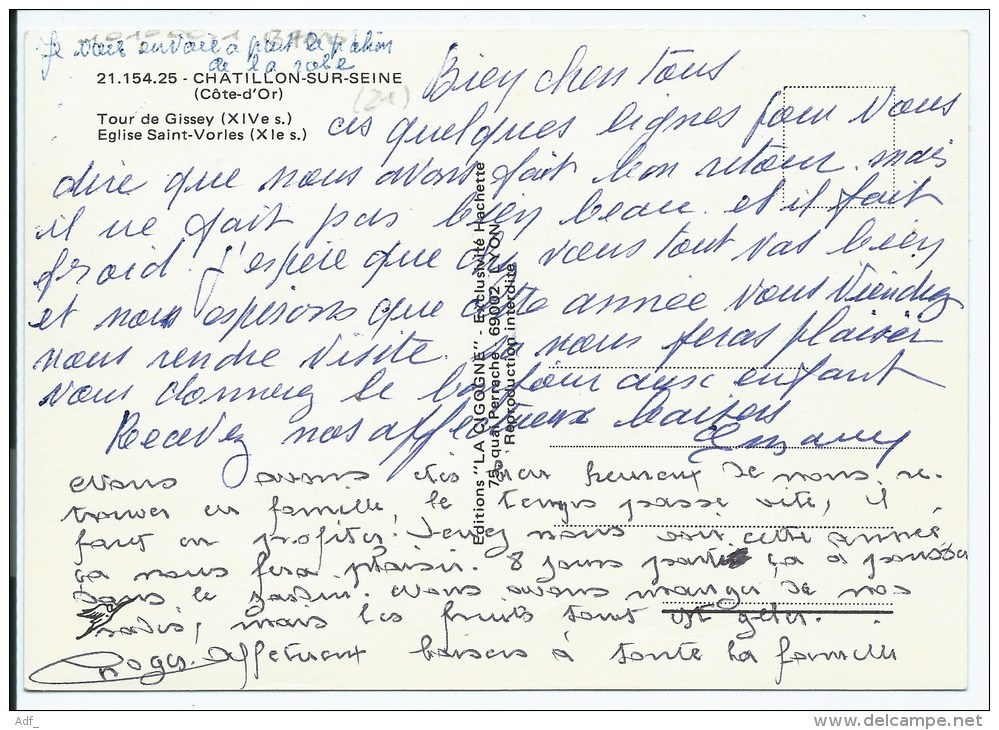 Je vous envoie à part le patron
de la robe
21.154.25 - CHATILLON-SUR-SEINE
(Côte-d'Or)
(21)
Tour de Gissey (XIVe s.)
Eglise Saint-Vorles (XIe s.)
Bien cher tous
ces quelques lignes pour vous
dire que nous avons fait bon retour. mais
il ne fait pas bien beau. et il fait
froid. J'espère que chez vous tout vas bien
et nous espérons que cette année vous viendrez
nous rendre visite. nous feras plaisir
vous donnerez le bonjour aux enfant
Recevez nos affectueux baisers
nous avons étés heureux de nous re-
trouver en famille, le temps passe vite, il
faut en profiter. Venez nous voir cette année
ça nous fera plaisir. 8 jours ça a pousser
dans le jardin. nous avons manger de nos
radis, mais les fruits sont geler.
Roger. Affectueux baisers à toute la famille
Editions "LA CIGOGNE" - Exclusivité Hachette
75, quai Perrache 69002 LYON
Reproduction interdite
Adf_
delcampe.net